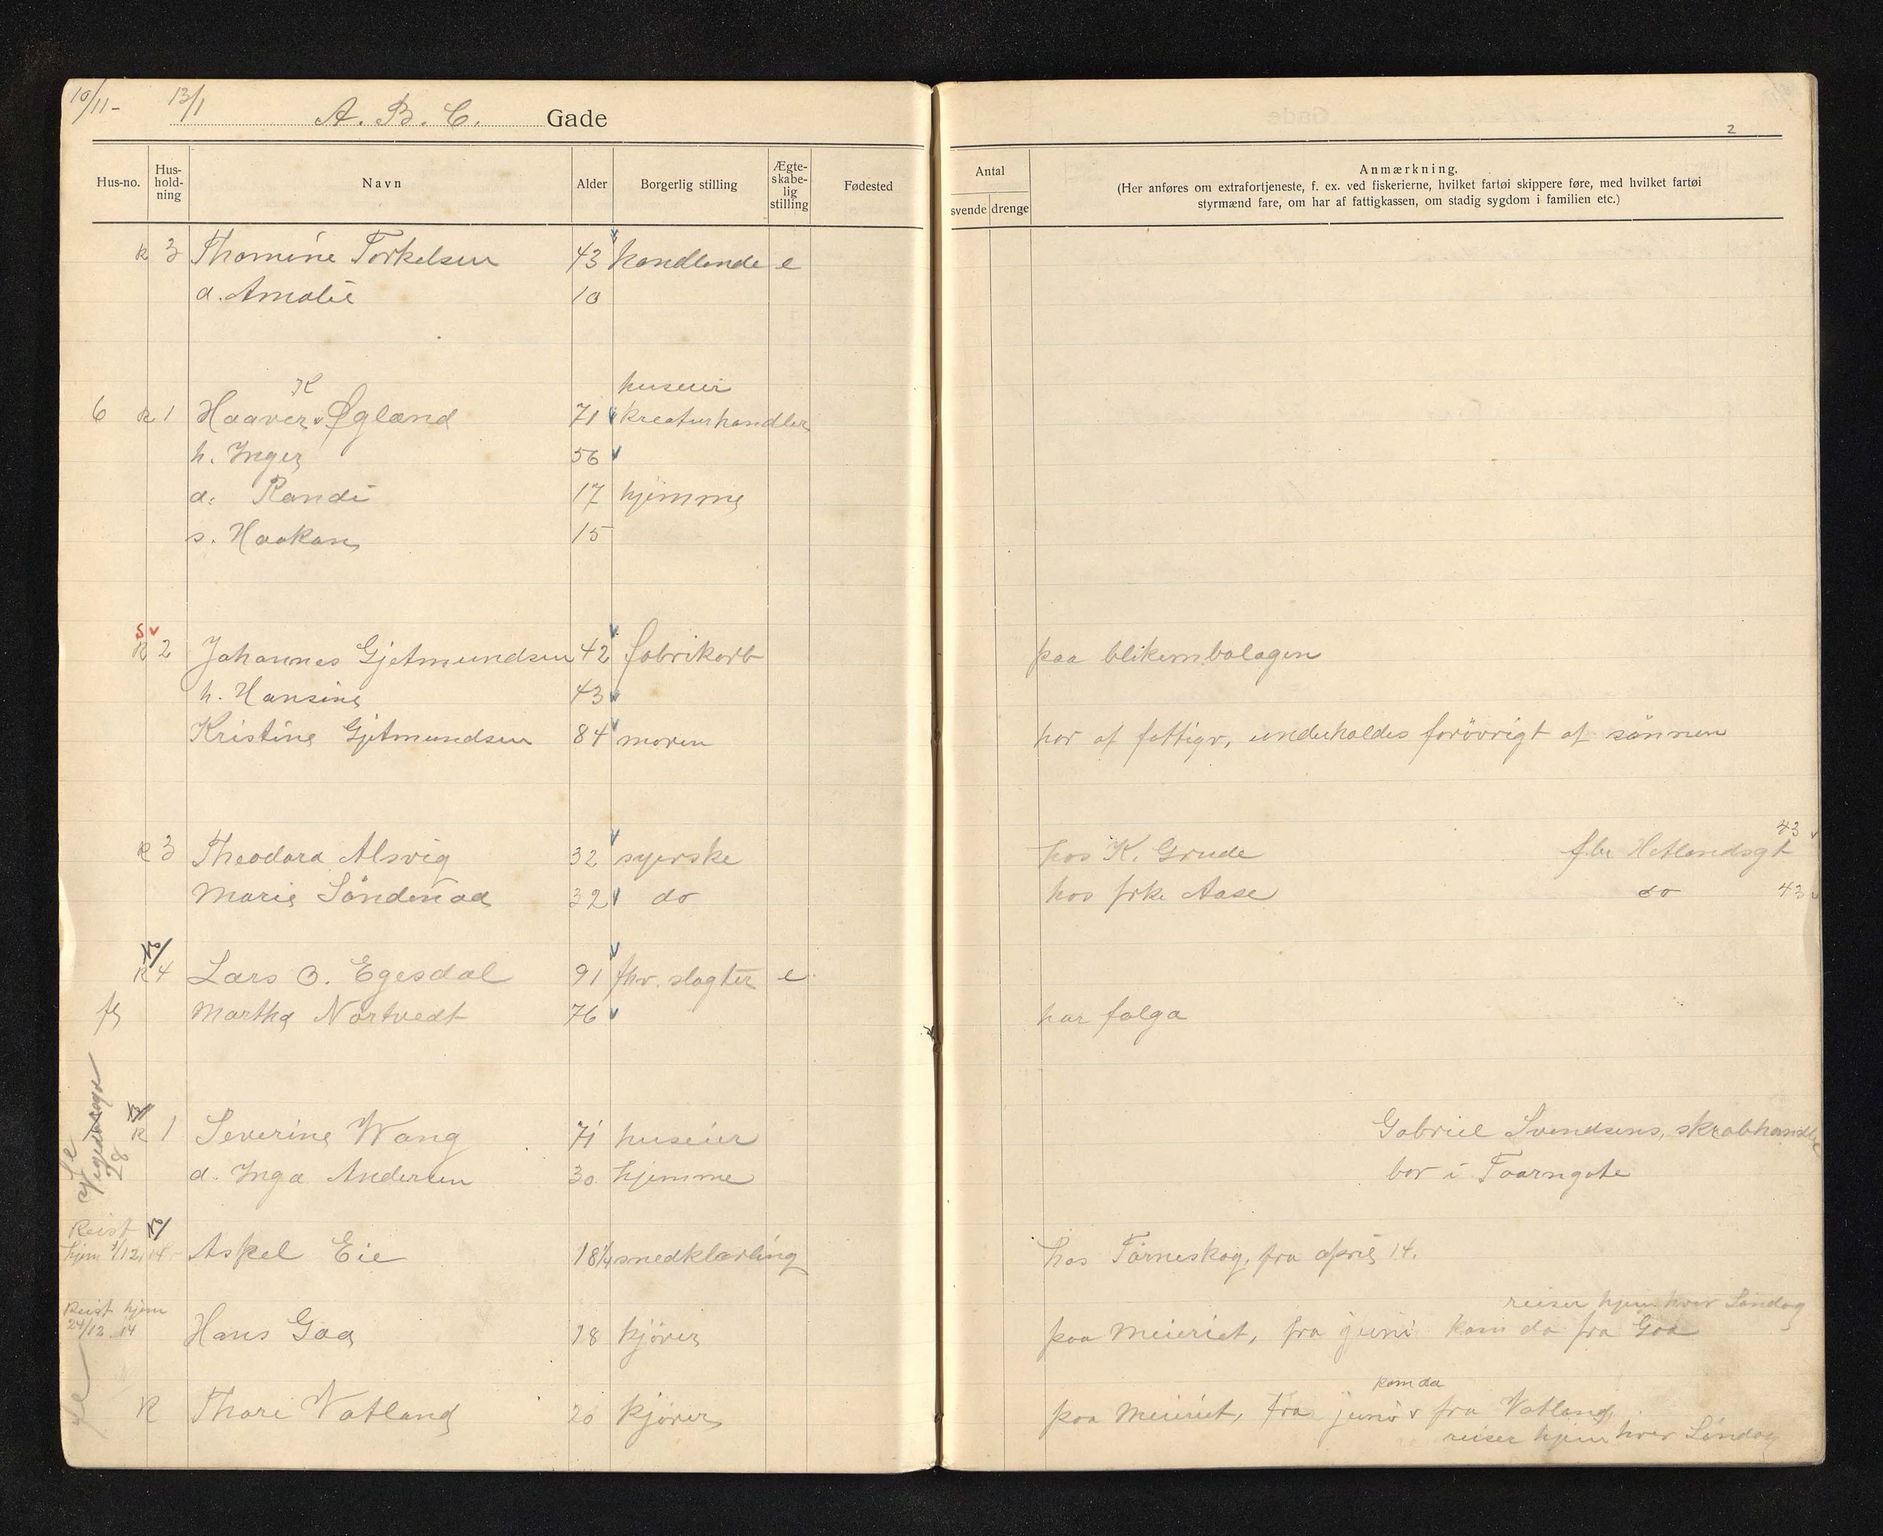 10/11- 13/1 A. B. C. Gade
2
Hus-no. Hus-hold-ning Navn Alder Borgerlig stilling Ægte-skabe-lig stilling Fødested Antal svende drenge Anmærkning.
(Her anføres om extrafortjeneste, f. ex. ved fiskerierne, hvilket fartøi skippere føre, med hvilket fartøi
styrmænd fare, om har af fattigkassen, om stadig sygdom i familien etc.)
R 3 Thomine Torkelsen 43 handlende e
d. Amalie 10
K huseier
6 R 1 Haaver Øgland 71 kreaturhandler
h. Inger 56
d. Randi 17 hjemme
s. Haakon 15
S v
R 2 Johannes Gjetmundsen 42 fabrikarb paa blikembalagen
h. Hansine 43
Kristine Gjetmundsen 84 moren har af fattigv, underholdes forøvrigt af sønnen
43
R 3 Theodora Alsvig 32 syerske hos K. Grude f.br Hetlandsgt
Marie Söndenaa 32 do hos frk Aase do 43
R 4 Lars O. Egesdal 91 fhv. slagter e
fs Martha Nörtvedt 76 har folga
R 1 Severine Wang 71 huseier Gabriel Svendsens, skrabhandler
28
d. Inga Andersen 30 hjemme bor i Taarngate
Reist
hjem 1/12.14 Askel Eie 18 1/4 smedklærling hos Törneskog, fra april 14.
Reist hjem reiser hjem hver Söndag
24/12.14 Hans Gaa 18 kjører paa Meieriet, fra juni kom da fra Gaa
kom da
R Thore Vatland 20 kjører paa Meieriet, Fra juni fra Vatland,
reiser hjem hver Söndag